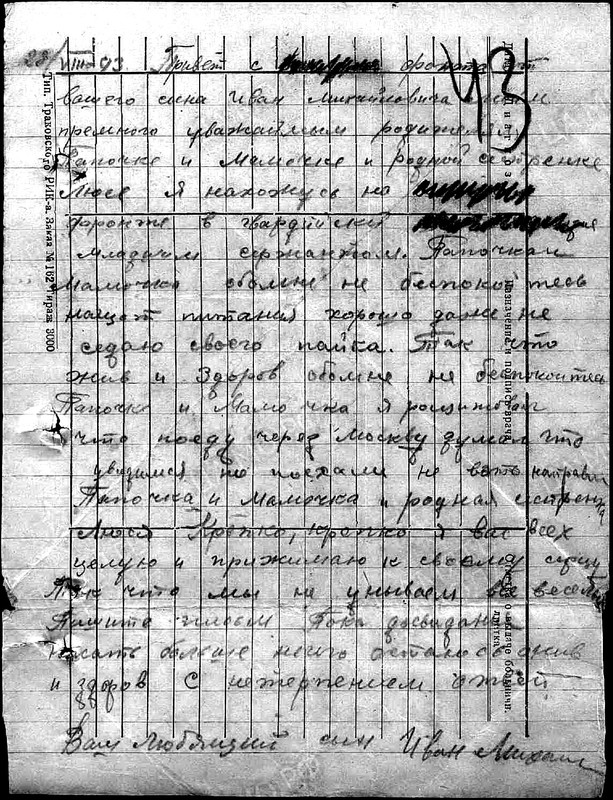 43
23/VIII-43 Привет с фронта от
вашего сына Иван Михайловича
премного уважаймым родителям
Папочке и Мамочке и родной сестренке
Люсе Я нахожусь на
фронте в гвардийский
младшим сержантом. Папочка и
Мамочка обомне не беспокойтесь
нащет питания хорошо даже не
седаю своего пайка. Так что
жив и Здоров обомне не беспокойтесь
Папочка и Мамочка я
что поеду через Москву думал что
увидимся но поехали не
Папочка и Мамочка и родная сестренка
Люся Крепко, крепко я вас всех
целую и прижимаю к своему серцу
Так что мы не унываем все веселы
Пишите Пока досвидания
писать больше нечего остаюсь жив
и здоров С нетерпением
Ваш Любящий сын Иван Михай
Тип. Траковского РИК-а. Заказ № 162 Тираж 3000
назначения и подпись врача
о выдаче больничн.
листка